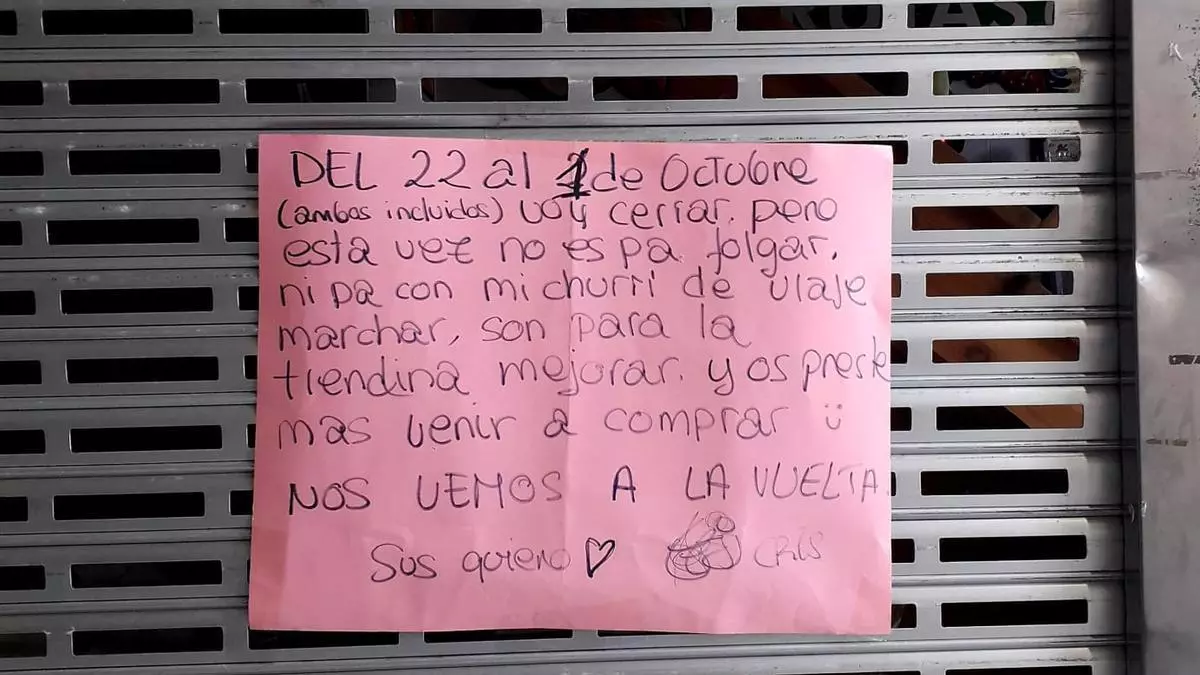 DEL 22 al 1 de Octubre
(ambos incluidos) voy cerrar. pero
esta vez no es pa folgar,
ni pa con mi churri de viaje
marchar, son para la
tiendina mejorar. y os preste
mas venir a comprar ü
NOS VEMOS A LA VUELTA.
Sus quiero ♡ CRIS